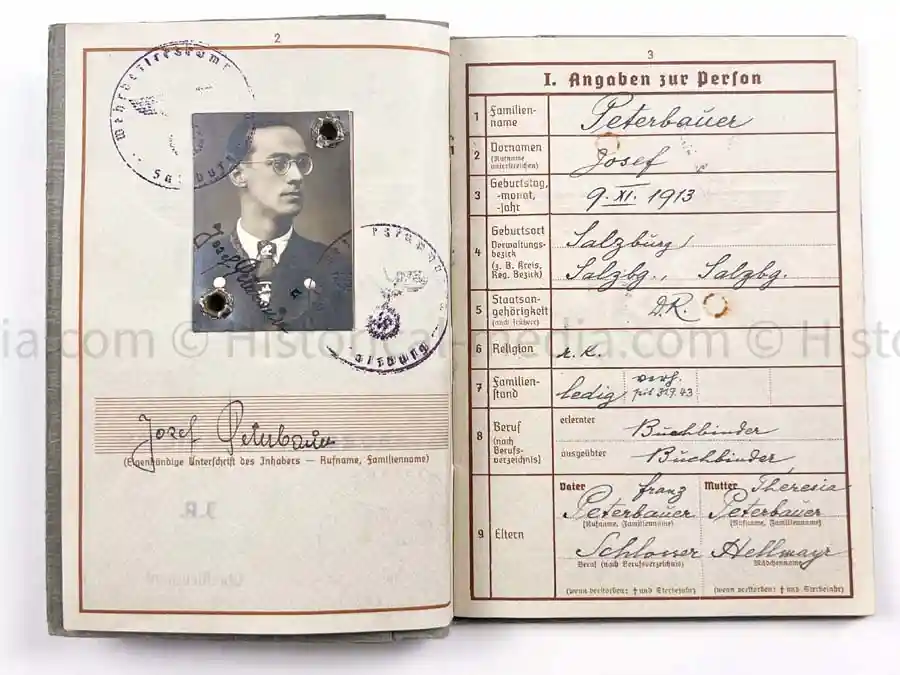 2
Wehrbezirkskomm
Salzburg
Josef Peterbauer
(Eigenhändige Unterschrift des Inhabers — Rufname, Familienname)
3
I. Angaben zur Person
1 Familien-
name
Peterbauer
2 Vornamen
(Rufname
unterstreichen)
Josef
3 Geburtstag,
-monat,
-jahr
9. XI. 1913
4 Geburtsort
Verwaltungs-
bezirk
(z. B. Kreis,
Reg. Bezirk)
Salzburg,
Salzbg., Salzbg.
5 Staatsan-
gehörigkeit
(auch frühere)
D.R.
6 Religion
r. k.
7 Familien-
stand
ledig
verh.
seit 3.9.43
8 Beruf
(nach
Berufs-
verzeichnis)
erlernter
Buchbinder
ausgeübter
Buchbinder
9 Eltern
Vater Franz
Peterbauer
(Rufname, Familienname)
Schlosser
Beruf (nach Berufsverzeichnis)
(wenn verstorben: † und Sterbejahr)
Mutter Theresia
Peterbauer
(Rufname, Familienname)
Hellmayr
Mädchenname
(wenn verstorben: † und Sterbejahr)
ia.com © Historical-Media.com © Histor